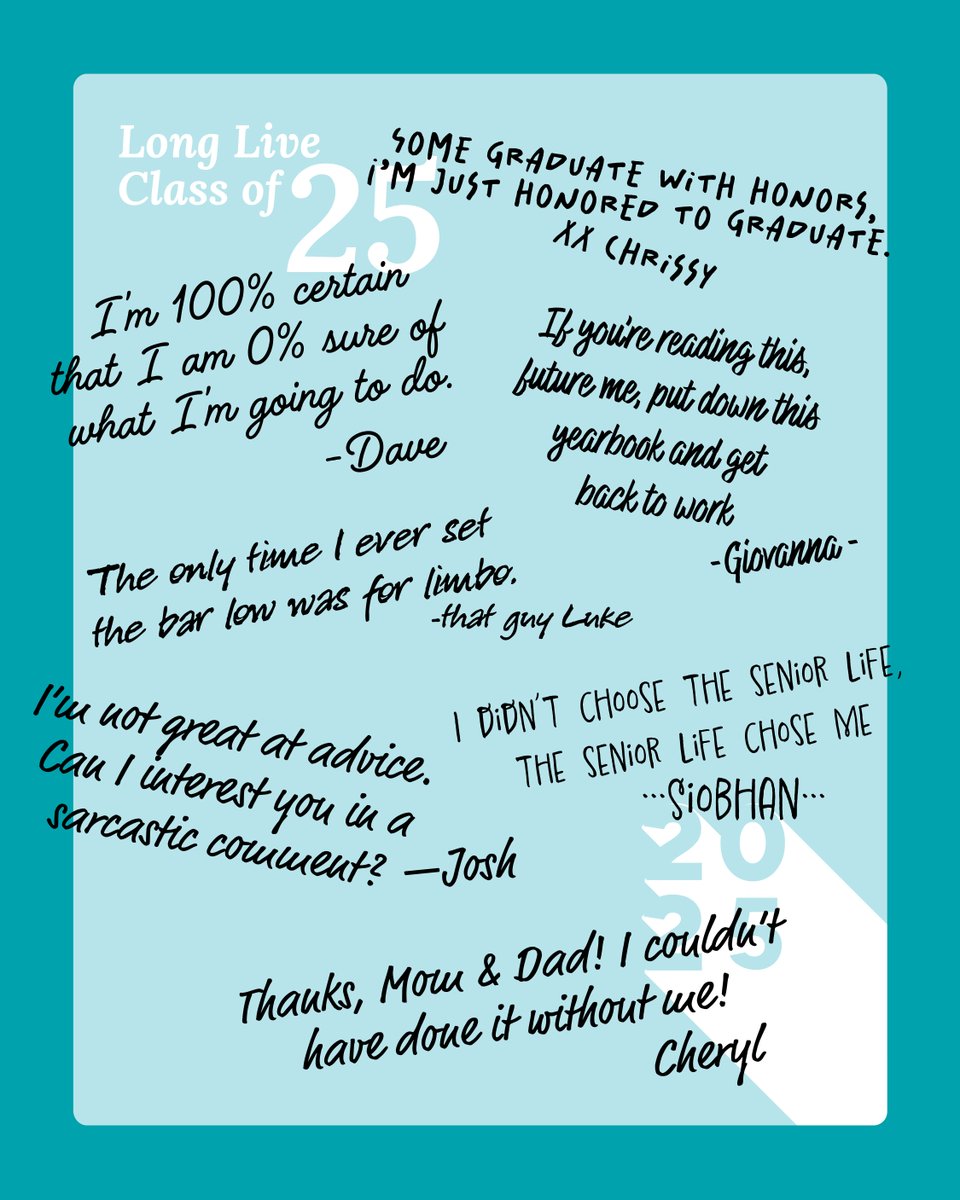 Long Live
Class of 25
SOME GRADUATE WITH HONORS,
I'M JUST HONORED TO GRADUATE.
XX CHRISSY
I'm 100% certain
that I am 0% sure of
what I'm going to do.
-Dave
If you're reading this,
future me, put down this
yearbook and get
back to work
-Giovanna-
The only time I ever set
the bar low was for limbo.
-that guy Luke
I DIDN'T CHOOSE THE SENIOR LIFE,
THE SENIOR LIFE CHOSE ME
...SIOBHAN...
I'm not great at advice.
Can I interest you in a
sarcastic comment? —Josh
20
25
Thanks, Mom & Dad! I couldn't
have done it without me!
Cheryl